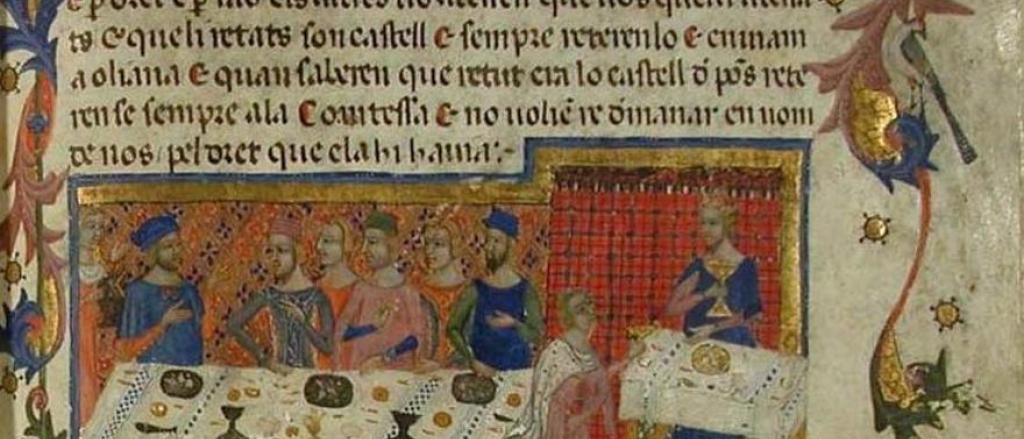 ts e que li retats son castell e sempre reterenlo e enuiam
a oliana e quan saberen que retut era lo castell d̄ põs rete
ren se sempre ala Comtessa e no uoliē re d̄manar en nom
de nos pel dret que ela hi hauia:-